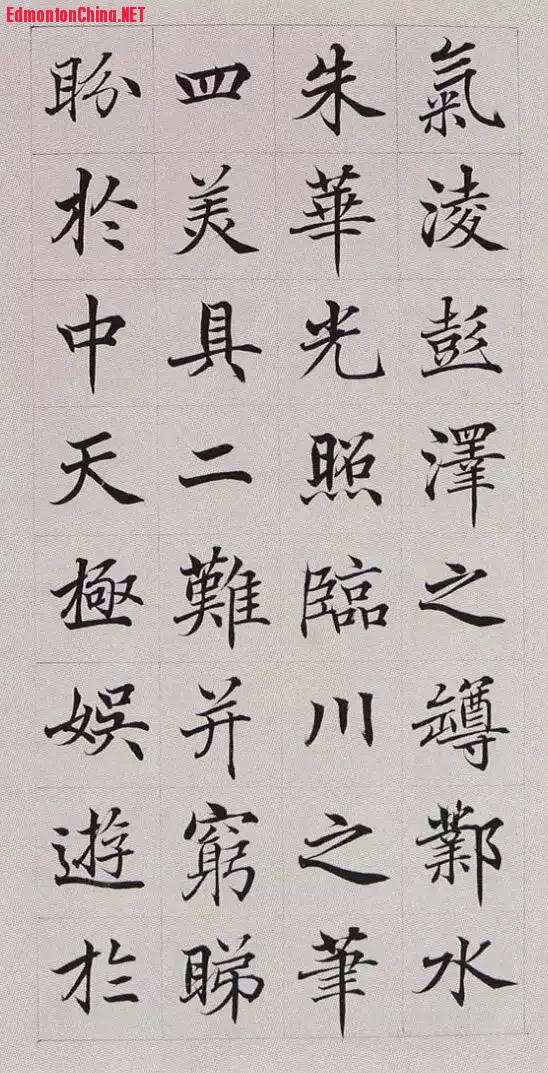 EdmontonChina.NET
氣淩彭澤之罇鄴水
朱華光照臨川之筆
四美具二難并窮睇
盼於中天極娛遊於